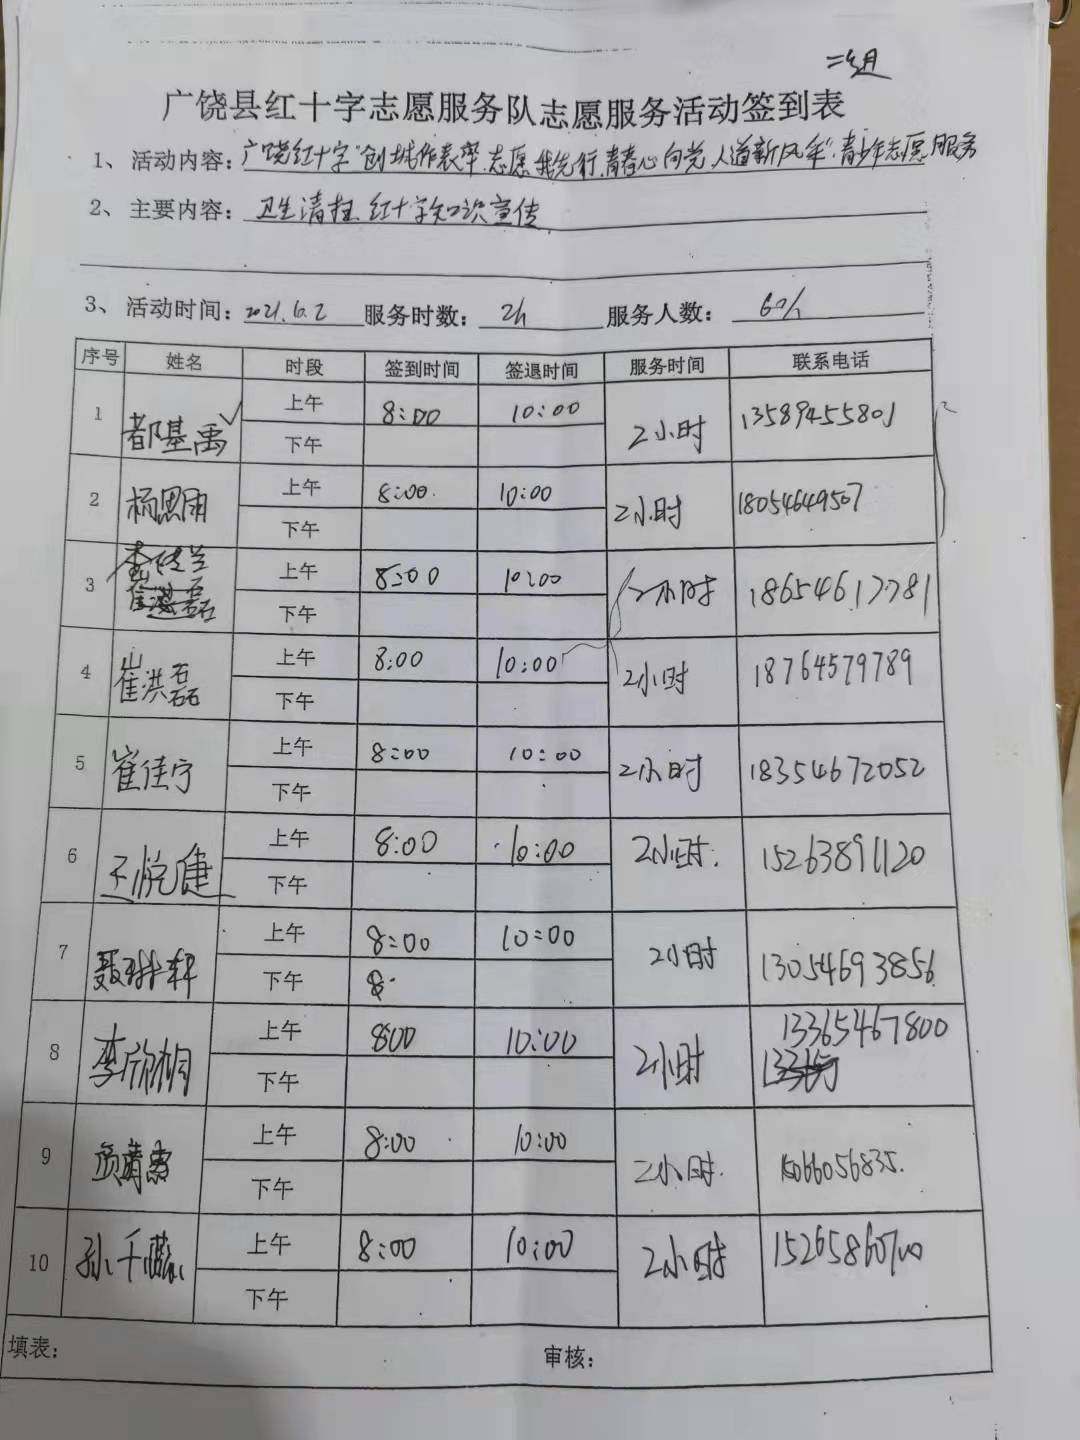 二组
广饶县红十字志愿服务队志愿服务活动签到表
1、活动内容：广饶红十字"创城作表率.志愿我先行.青春心向党.人道新风年".青少年志愿服务
2、主要内容：卫生清扫、红十字知识宣传
3、活动时间：2021.6.2 服务时数：2h 服务人数：60人
序号 姓名 时段 签到时间 签退时间 服务时间 联系电话
1 都基禹 上午 8:00 10:00 2小时 13589455801
下午
2 杨思雨 上午 8:00 10:00 2小时 18054649507
下午
3 上午 8:00 10:00 2小时 18654617781
崔洪磊 下午
4 崔洪磊 上午 8:00 10:00 2小时 18764579789
下午
5 崔佳宁 上午 8:00 10:00 2小时 18354672052
下午
6 王悦健 上午 8:00 10:00 2小时. 15263891120
下午
7 上午 8:00 10:00 2小时 13054693856
下午 8:
8 李欣桐 上午 8:00 10:00 2小时 13365467800
下午
9 上午 8:00 10:00 2小时. 15066056835.
下午
10 孙千 上午 8:00 10:00 2小时
下午
填表： 审核：